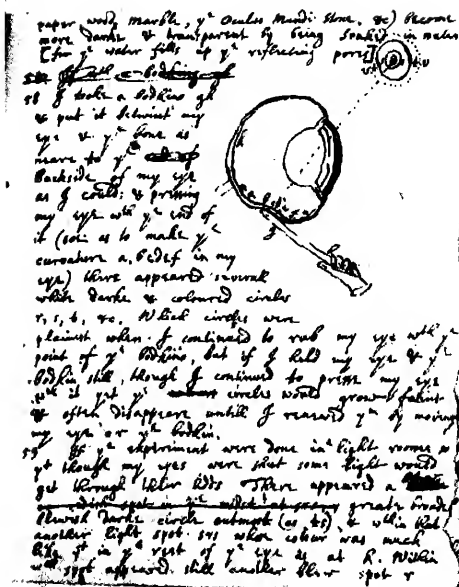 paper wood, marble, yᵉ Oculus Mundi stone, &c) become
more darke & transparent by being soaked in water
[for yᵉ water fills up yᵉ reflecting pores]
58 I tooke a bodkine gh
& put it betwixt my
eye & yᵉ bone as
neare to yᵉ
Backside of my eye
as I could: & pressing
my eye wᵗʰ yᵉ end of
it (soe as to make yᵉ
curvature a, bcdef in my
eye) there appeared severall
white darke & coloured circles
r, s, t, &c. Which circles were
plainest when I continued to rub my eye wᵗʰ yᵉ
point of yᵉ bodkine, but if I held my eye & yᵉ
bodkin still, though I continued to presse my eye
wᵗʰ it yet yᵉ circles would grow faint
& often disappeare untill I renewed yᵐ by moving
my eye or yᵉ bodkin.
59 If yᵉ experiment were done in a light roome so
yᵗ though my eyes were shut some light would
get through their lidds There appeared a
greate broade
blewish darke circle outmost (as ts), & wᵗʰin that
another light spot srs whose colour was much
like yᵗ in yᵉ rest of yᵉ eye as at k. Within
wᶜʰ spot appeared still another blew spot r